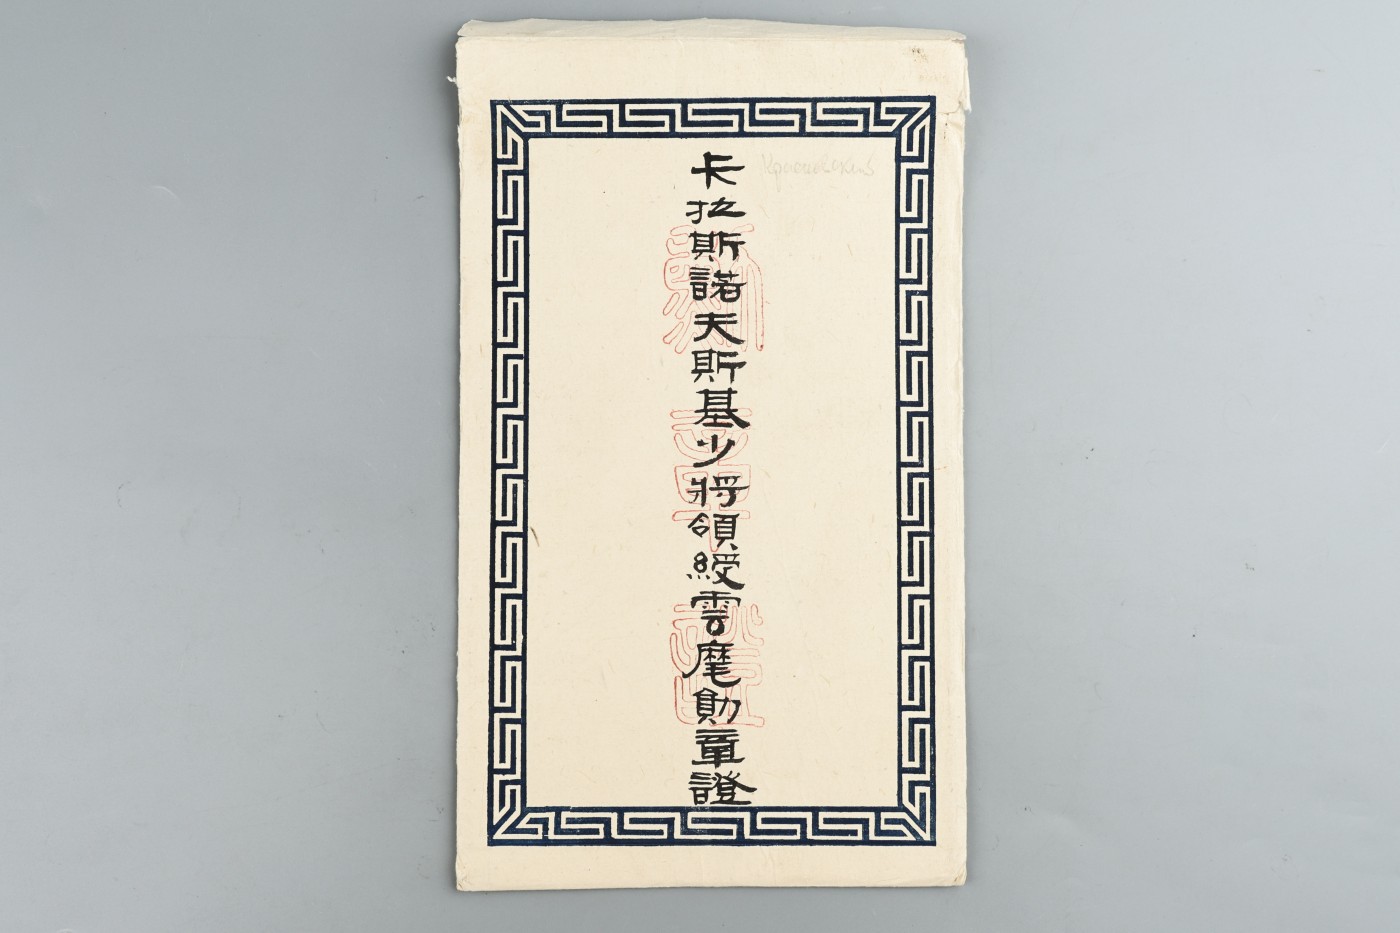 卡拉斯諾夫斯基少將領綬雲麾勛章證
Красновский